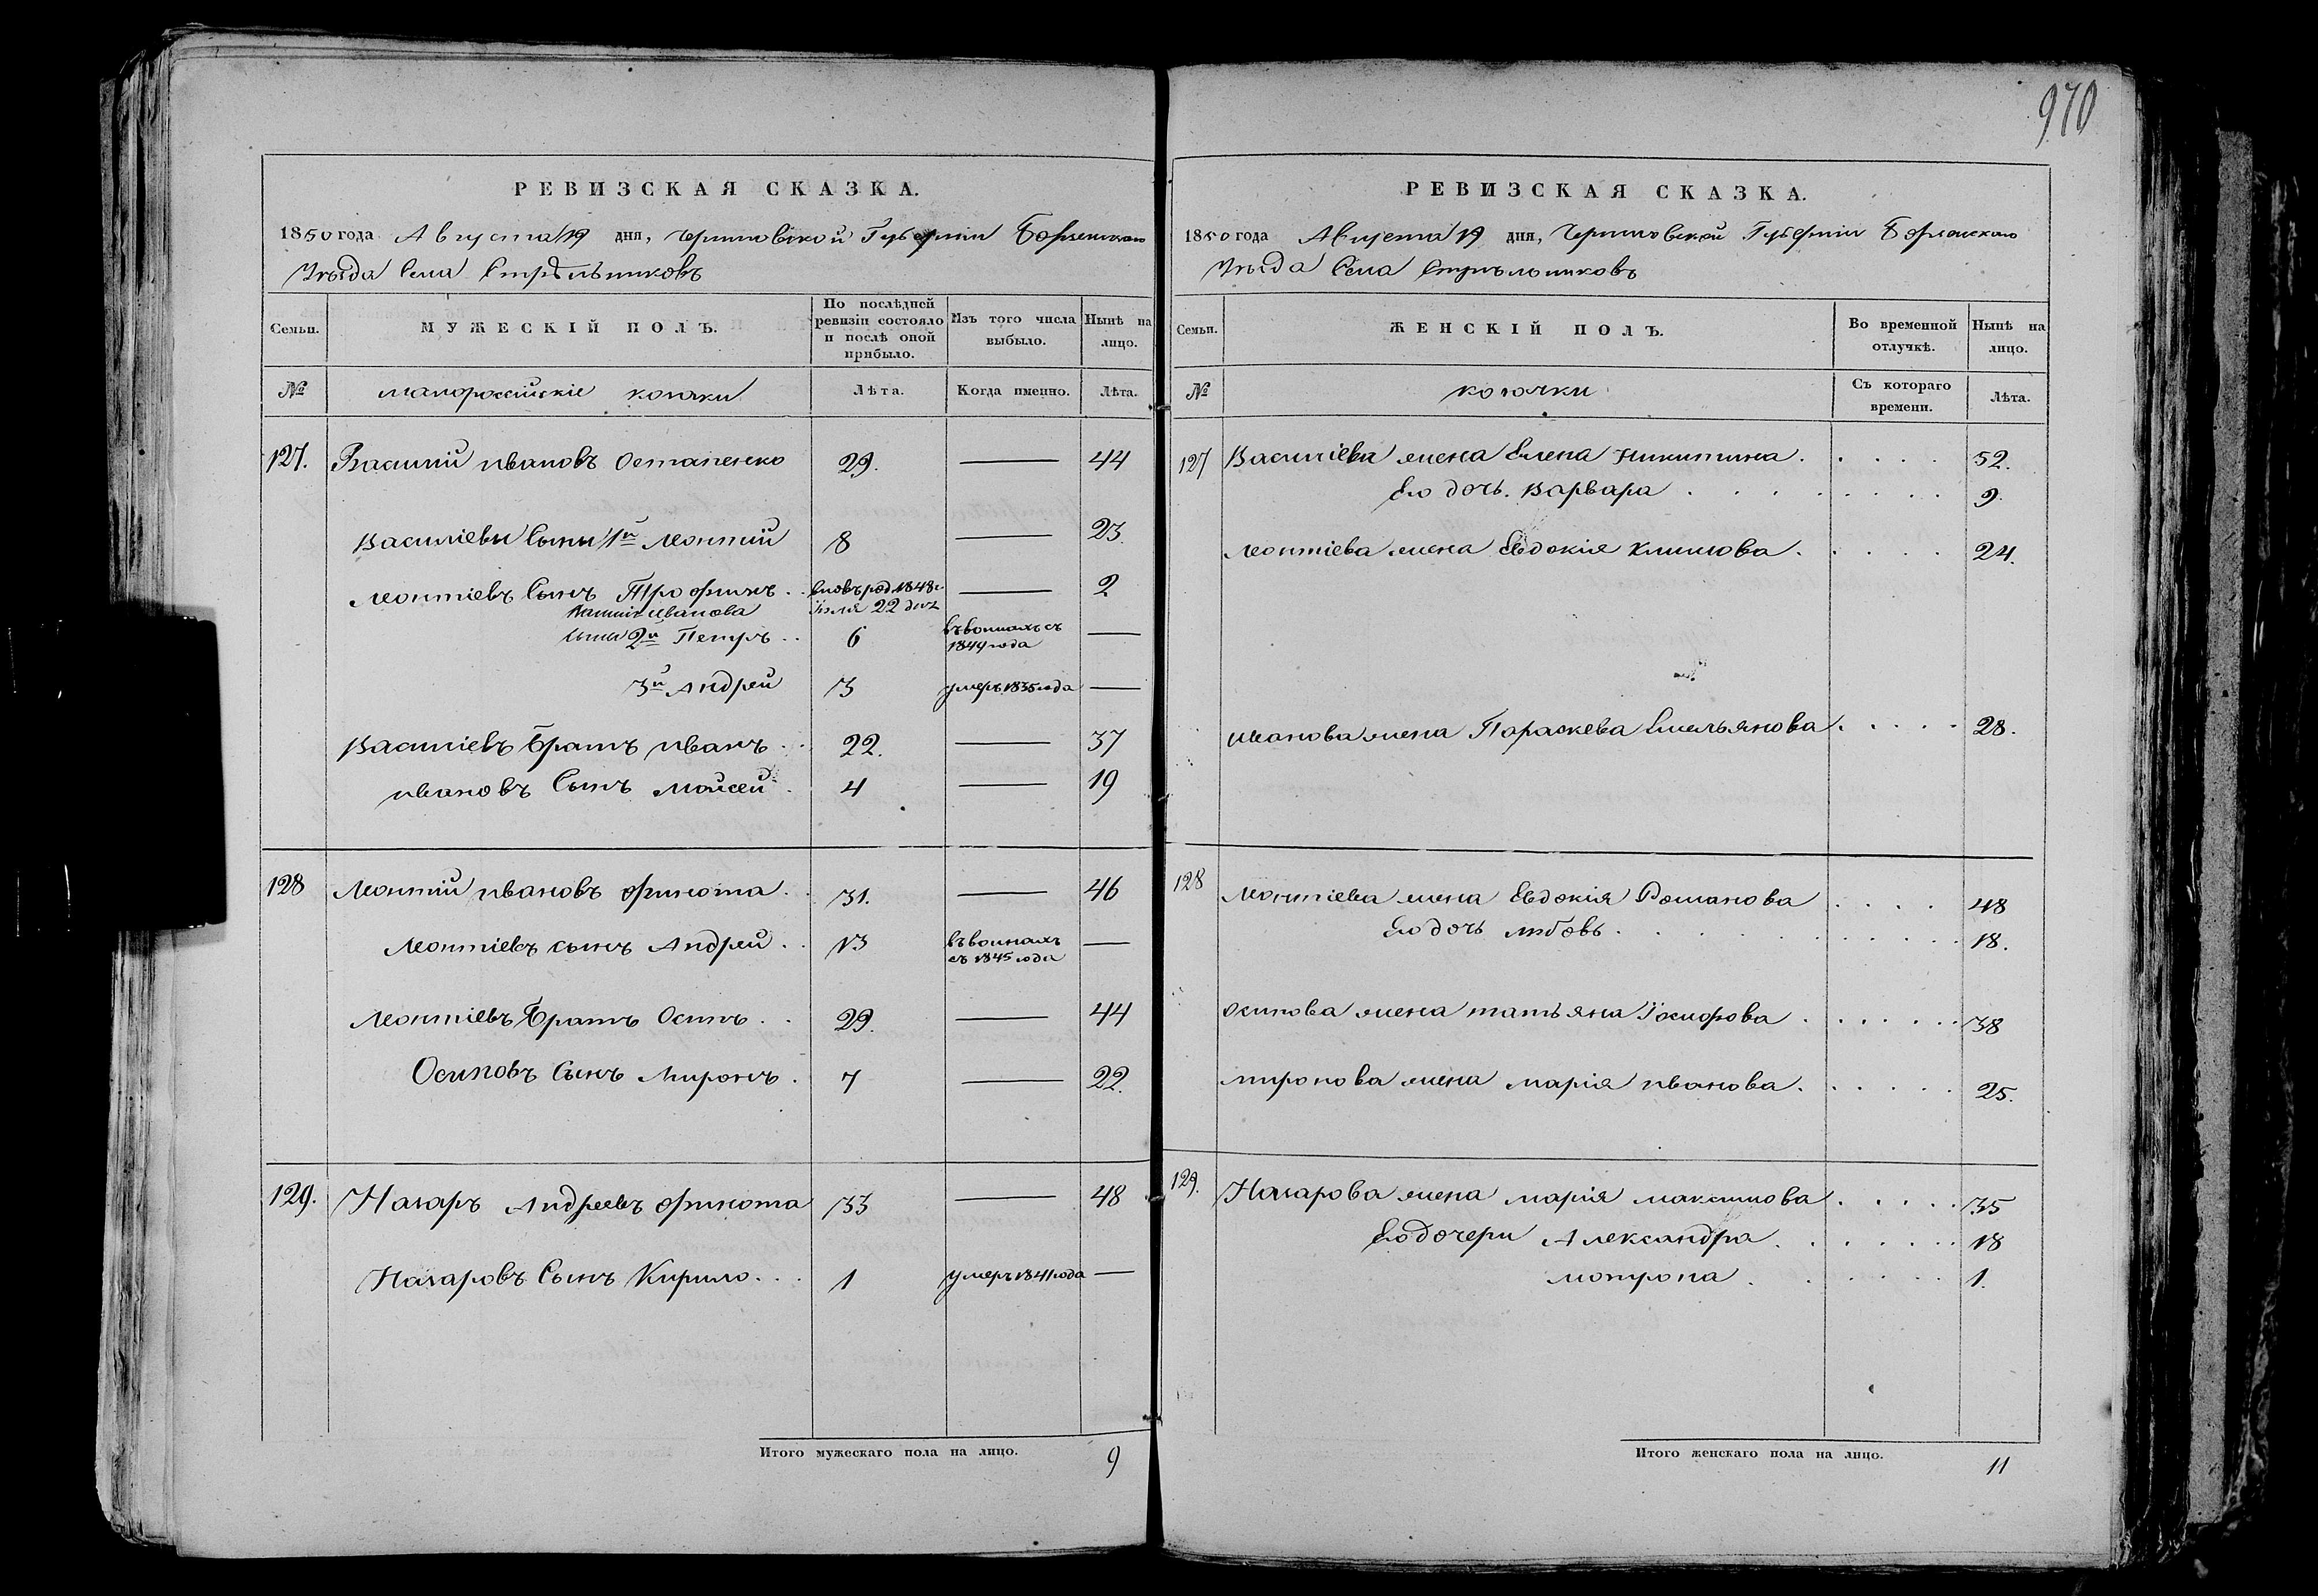 970
РЕВИЗСКАЯ СКАЗКА.
1850 года Августа 19 дня, Черниговской Губернии Борзенскаго
Уѣзда Села Стрѣльниковъ
Семьи.
МУЖЕСКІЙ ПОЛЪ.
По послѣдней ревизіи состояло и послѣ оной прибыло.
Изъ того числа выбыло.
Нынѣ на лицо.
№
малороссійскіе козаки
Лѣта.
Когда именно.
Лѣта.
127. Василій ивановъ Остапенко 29. 44
Василіевы Сыны 1й Леонтій 8 23.
Леонтіевъ Сынъ Трофимъ вновь род. 1848 г. 2
Іюля 22 дня
Василія иванова
сыны 2й Петръ 6 въ воинахъ съ
1844 года
3й Андрей 3 умеръ 1835 года
Василіевъ Братъ иванъ 22. 37
ивановъ Сынъ Мойсей 4 19
128 Леонтій ивановъ 31. 46
Леонтіевъ сынъ Андрей 13 въ воинахъ
съ 1845 года
Леонтіевъ Братъ Осипъ 29. 44
Осиповъ Сынъ Миронъ 7 22.
129. Назаръ Андреевъ 33 48
Назаровъ Сынъ Кирило 1 умеръ 1841 года
Итого мужескаго пола на лицо. 9
РЕВИЗСКАЯ СКАЗКА.
1850 года Августа 19 дня, Черниговской Губерніи Борзенскаго
Уѣзда Села Стрѣльниковъ
Семьи.
ЖЕНСКІЙ ПОЛЪ.
Во временной отлучкѣ.
Нынѣ на лицо.
№
козачки
Съ котораго времени.
Лѣта.
127 Василіева жена Елена Никитина 52.
Его дочь Варвара 9.
Леонтіева жена Евдокія Климова 24.
иванова жена Параскева Емельянова 28.
128 Леонтіева жена Евдокія Романова 48
Его дочь любовь 18.
Осипова жена татьяна 38
миронова жена марія иванова 25.
129. Назарова жена марія максимова 35
Его дочери Александра 18
мотрона 1.
Итого женскаго пола на лицо. 11